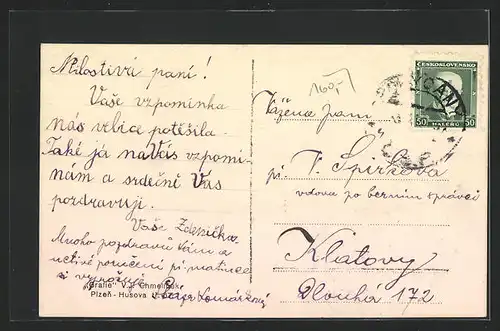 Milostivá paní!
Vaše vzpomínka
nás velice potěšila.
Také já na Vás vzpomí-
nám a srdečně Vás
pozdravuji.
Vaše Zdenička.
Mnoho pozdravů Vám a
uctivé poručení pí matince
si vyprošuje
"Grafie" V.J. Chmelíček
Plzeň - Husova
160,-
ČESKOSLOVENSKO
50 HALÉŘŮ 50
Vážená paní
pí. T. Špirková
vdova po berním správci
Klatovy
Dlouhá 172